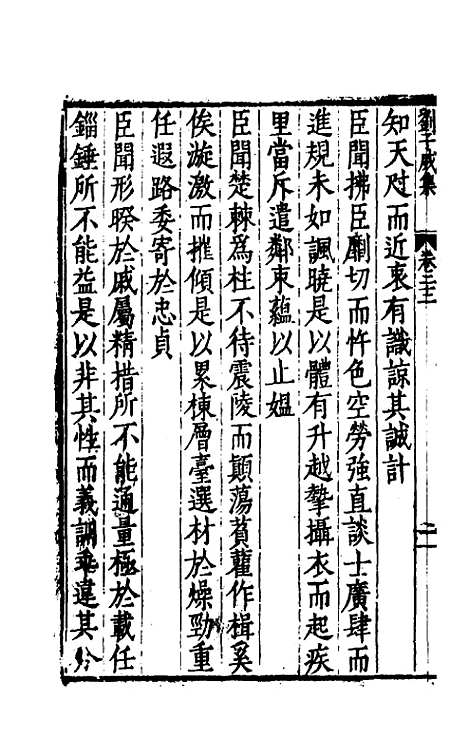 劉子威集 卷二十三 二
知天愆而近衷有識諒其誠計
臣聞拂臣劘切而忤色空勞強直談士廣肆而
進規未如諷曉是以體有升越摯攝衣而起疾
里當斥遣鄰束蘊以止媼
臣聞楚棘爲柱不待震陵而顛蕩萯雚作楫奚
俟漩激而摧傾是以累棟層臺選材於燥勁重
任遐路委寄於忠貞
臣聞形暌於戚屬精措所不能通量極於載任
錙錘所不能益是以非其性而義訓乖違其分